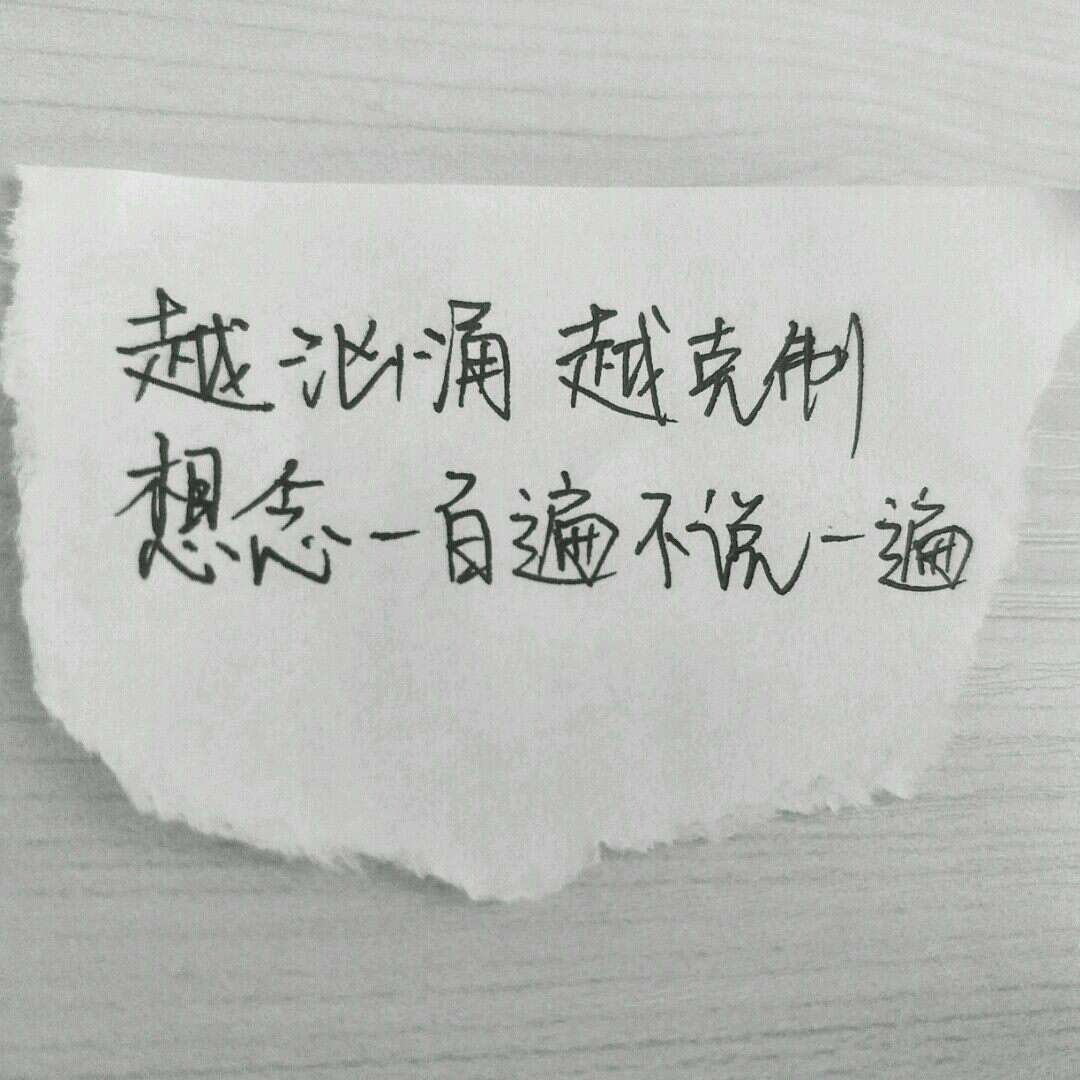 越汹涌 越克制
想念一百遍不说一遍